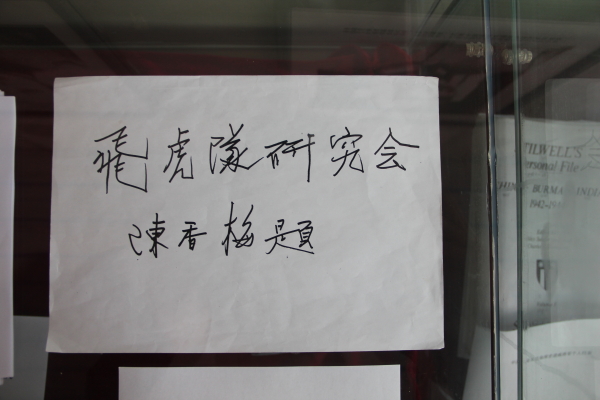 飛虎隊研究会
陳香梅題
STILWELL'S
Personal File
CHINA BURMA INDIA